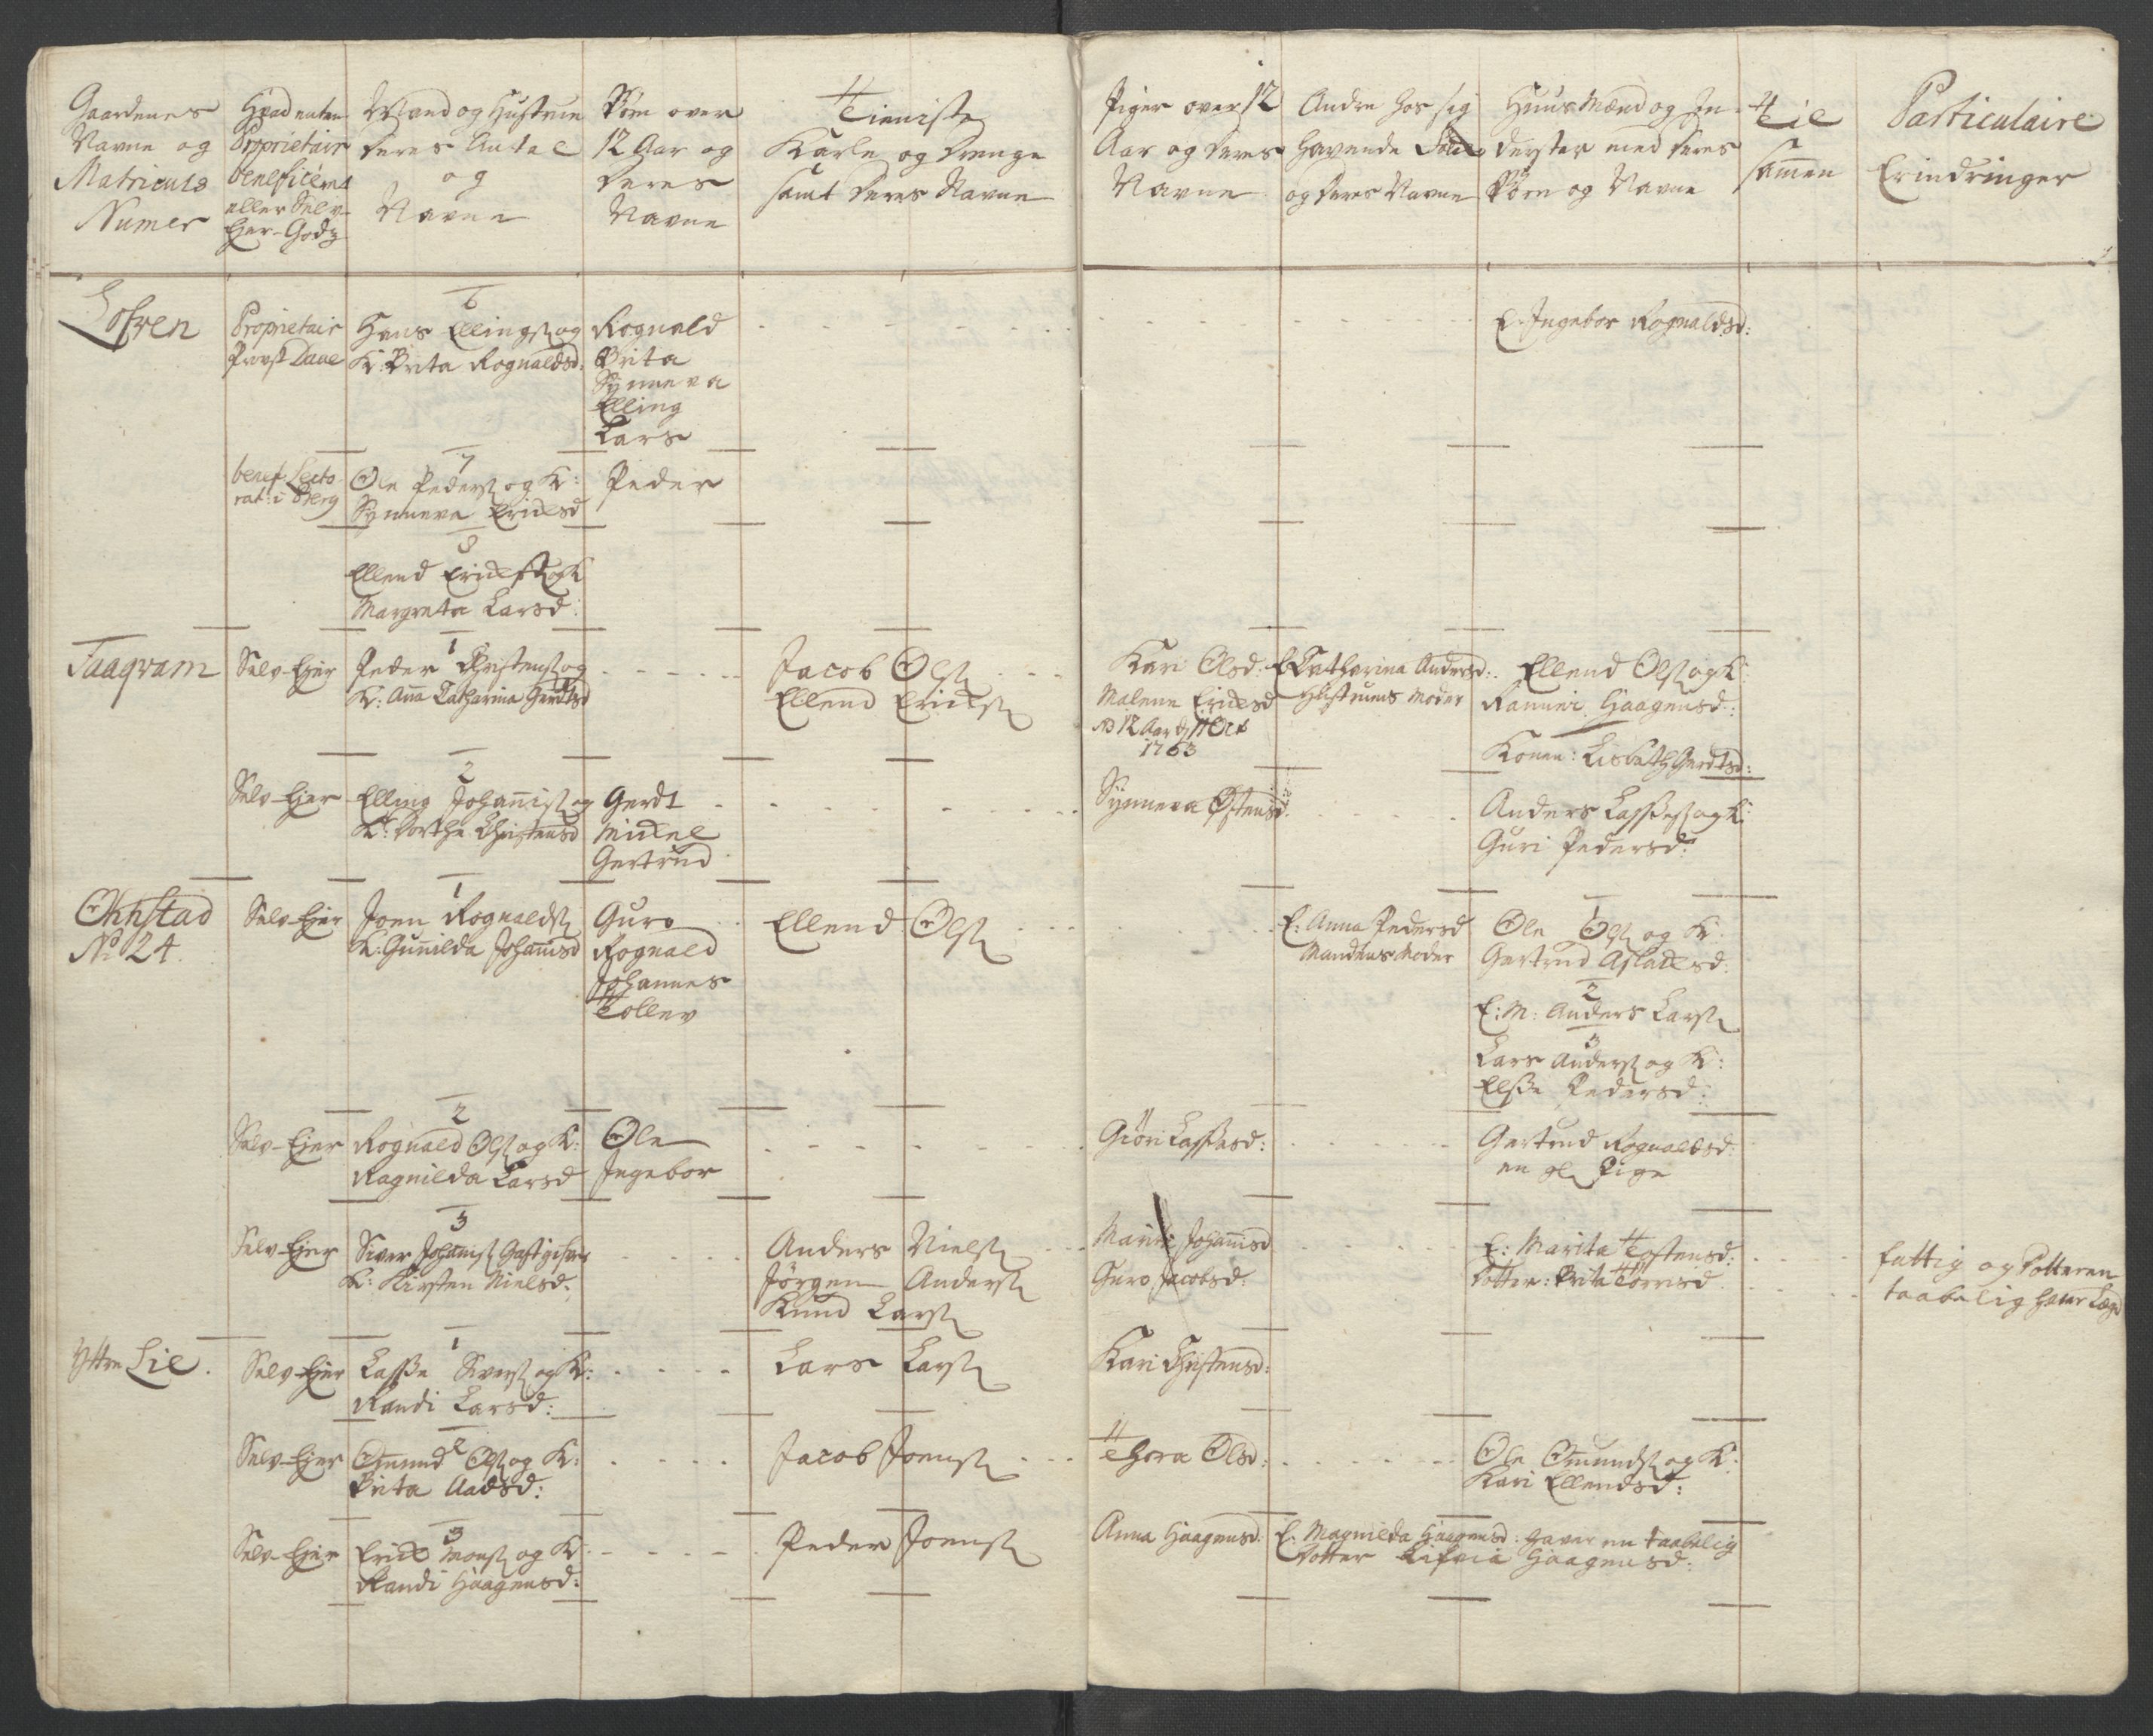 Gaardenes
Navne og
Matriculs
Numer
Hvad enten
Proprietair
beneficeret
eller Selv-
Ejer-Godz
Mand og Hustrue
deres Antal
og
Navne
Børn over
12 Aar og
deres
Navne
Tieniste
Karle og Drenge
samt deres Navne
Piger over 12
Aar og deres
Navne
Andre hos sig
havende Folck
og deres Navne
Huusmænd og In-
derster med deres
Børn og Navne
Til
samen
Particulaire
Erindringer
Lofven
Proprietair
Provst Daue
6
Hans Ellings og
K: Brita Rognaldsd:
Rognald
Brita
Synneva
Elling
Lars
E. Ingebor Rognaldsd:
benef. Lecto
rat: i Berg
7
Ole Peders og K:
Synneva Ericksd
Peder
8
Ellend Ericks og K
Margreta Larsd:
Taaqvam
Selv-Ejer
1
Peder Christens og
K: Anna Catharina Gerdtsd
Jacob Ols
Ellend Ericks
Kari Olsd:
Malene Ericksd
NB 12 Aar d. 11 Oct
1763
E. Catharina Andersd:
Hustruens Moder
Ellend Ols og K:
Rannei Haagensd:
Konen: Lisbeth Gerdtsd:
Selv-Ejer
2
Elling Johannis og
K: Dorthe Christensd
Gerdt
Mickel
Gertrud
Synneva Østensd:
Anders Lasses og K:
Guri Pedersd:
Ohnstad
No 24.
Selv-Ejer
1
Joen Rognalds
K: Gunnilda Johannisd
Guro
Rognald
Johannes
Tollev
Ellend Ols
E: Anna Pedersd
Mandens Moder
1
Ole Ols og K:
Gertrud Aslacksd:
2
E: M: Anders Lars
3
Lars Anders og K:
Elsse Pedersd:
Selv-Ejer
2
Rognald Ols og K:
Ragnilda Larsd
Ole
Ingebor
Giöri Lassesd:
Gertrud Rognaldsd:
en gl. Pige
Selv-Ejer
3
Siver Johannis Gastgifver
K: Kirsten Nielsd:
Anders Niels
Jörgen Anders
Knud Lars
Marite Johannisd
Guro Jacobsd:
E: Marita Tostensd:
Dotter: Brita Torrisd
fattig og Dotteren
taabelig haver Lægd
Yttre Lie.
Selv-Ejer
1
Lasse Sivers og K:
Randi Larsd:
Lars Lars
Kari Christensd:
Selv-Ejer
2
Omund Ols og K:
Brita Aadsd:
Jacob Joens
Thora Olsd:
Ole Omunds og K:
Kari Ellendsd:
Selv-Ejer
3
Erick Mons og K:
Randi Haagensd:
Peder Joens
Anna Haagensd:
E. Magnilda Haagensd: haver en taabelig
Dotter Haagensd: